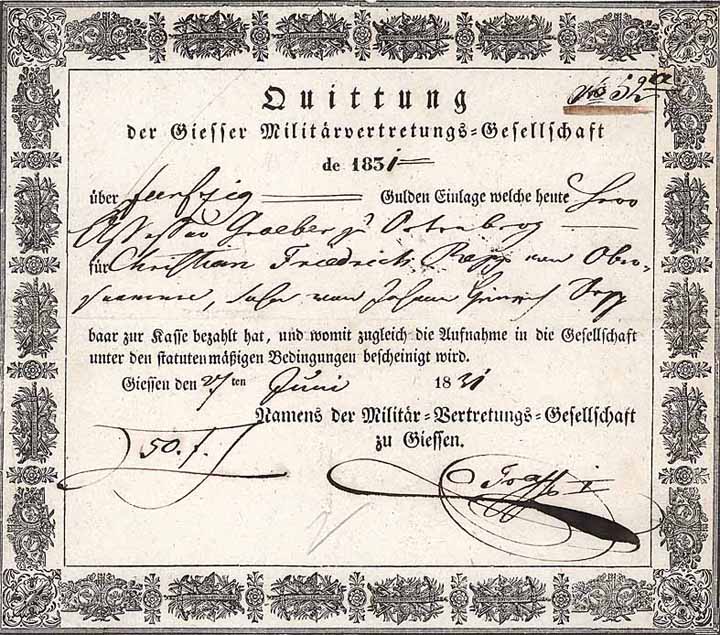 Quittung
der Giesser Militärvertretungs=Gesellschaft
de 1831
über funfzig Gulden Einlage welche heute Herr
Assessor Graeber zu
für Christian Friedrich Rapp von Ober-
Sohn von Johann Heinrich Rapp
baar zur Kasse bezahlt hat, und womit zugleich die Aufnahme in die Gesellschaft
unter den statutenmäßigen Bedingungen bescheinigt wird.
Giessen den 27ten Juni 1831
Namens der Militär=Vertretungs=Gesellschaft
zu Giessen.
50. f.